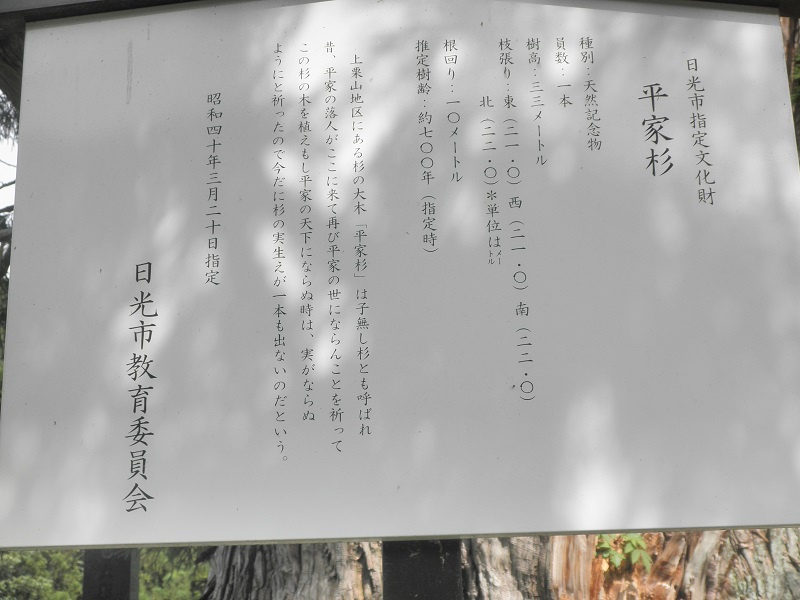 日光市指定文化財
平家杉
種別：天然記念物
員数：一本
樹高：三三メートル
枝張り：東（二一・〇）西（二一・〇）南（二二・〇）
北（二二・〇）＊単位はメートル
根回り：一〇メートル
推定樹齢：約七〇〇年（指定時）
上栗山地区にある杉の大木「平家杉」は子無し杉とも呼ばれ
昔、平家の落人がここに来て再び平家の世にならんことを祈って
この杉の木を植えもし平家の天下にならぬ時は、実がならぬ
ようにと祈ったので今だに杉の実生えが一本も出ないのだという。
昭和四十年三月二十日指定
日光市教育委員会